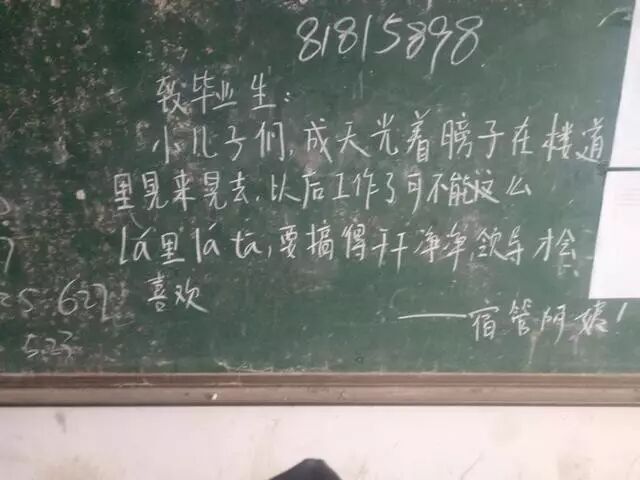 81815898
致毕业生：
小儿子们，成天光着膀子在楼道
里晃来晃去，以后工作了可不能这么
lá里lá tā，要搞得干干净净，领导才会
喜欢
——宿管阿姨！
627
523